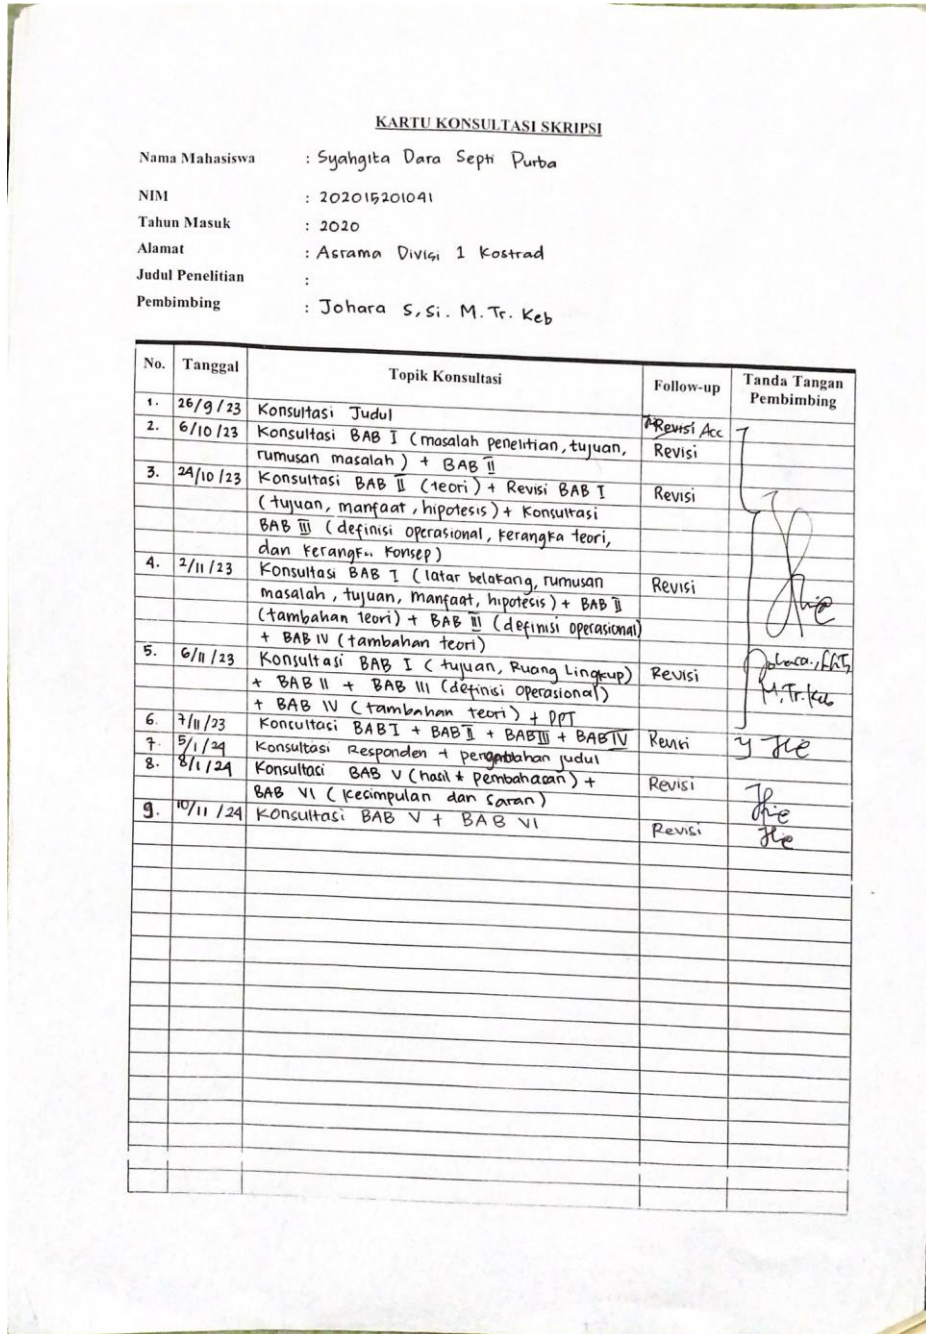 KARTU KONSULTASI SKRIPSI
Nama Mahasiswa : Syahgita Dara Septi Purba
NIM : 202015201041
Tahun Masuk : 2020
Alamat : Asrama Divisi 1 Kostrad
Judul Penelitian :
Pembimbing : Johara S,Si. M.Tr.Keb
No. Tanggal Topik Konsultasi Follow-up Tanda Tangan Pembimbing
1. 26/9/23 Konsultasi Judul Revisi Acc
2. 6/10/23 Konsultasi BAB I (masalah penelitian, tujuan, Revisi
rumusan masalah) + BAB II
3. 24/10/23 Konsultasi BAB II (teori) + Revisi BAB I Revisi
(tujuan, manfaat, hipotesis) + Konsultasi
BAB III (definisi operasional, kerangka teori,
dan kerangk.. konsep)
4. 2/11/23 Konsultasi BAB I (latar belakang, rumusan Revisi
masalah, tujuan, manfaat, hipotesis) + BAB II
(tambahan teori) + BAB III (definisi operasional)
+ BAB IV (tambahan teori)
5. 6/11/23 Konsultasi BAB I (tujuan, Ruang Lingkup) Revisi
+ BAB II + BAB III (definisi operasional)
+ BAB IV (tambahan teori) + PPT
M.Tr.Keb
6. 7/11/23 Konsultasi BAB I + BAB II + BAB III + BAB IV Revisi
7. 5/1/24 Konsultasi Responden + judul
8. 8/1/24 Konsultasi BAB V (hasil + pembahasan) + Revisi
BAB VI (kesimpulan dan saran)
9. 10/11/24 Konsultasi BAB V + BAB VI Revisi